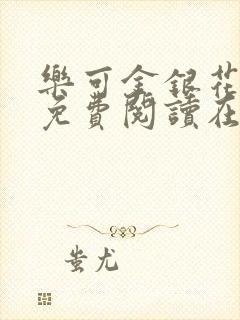 樂可金銀花
免費閱讀在
蚩尤